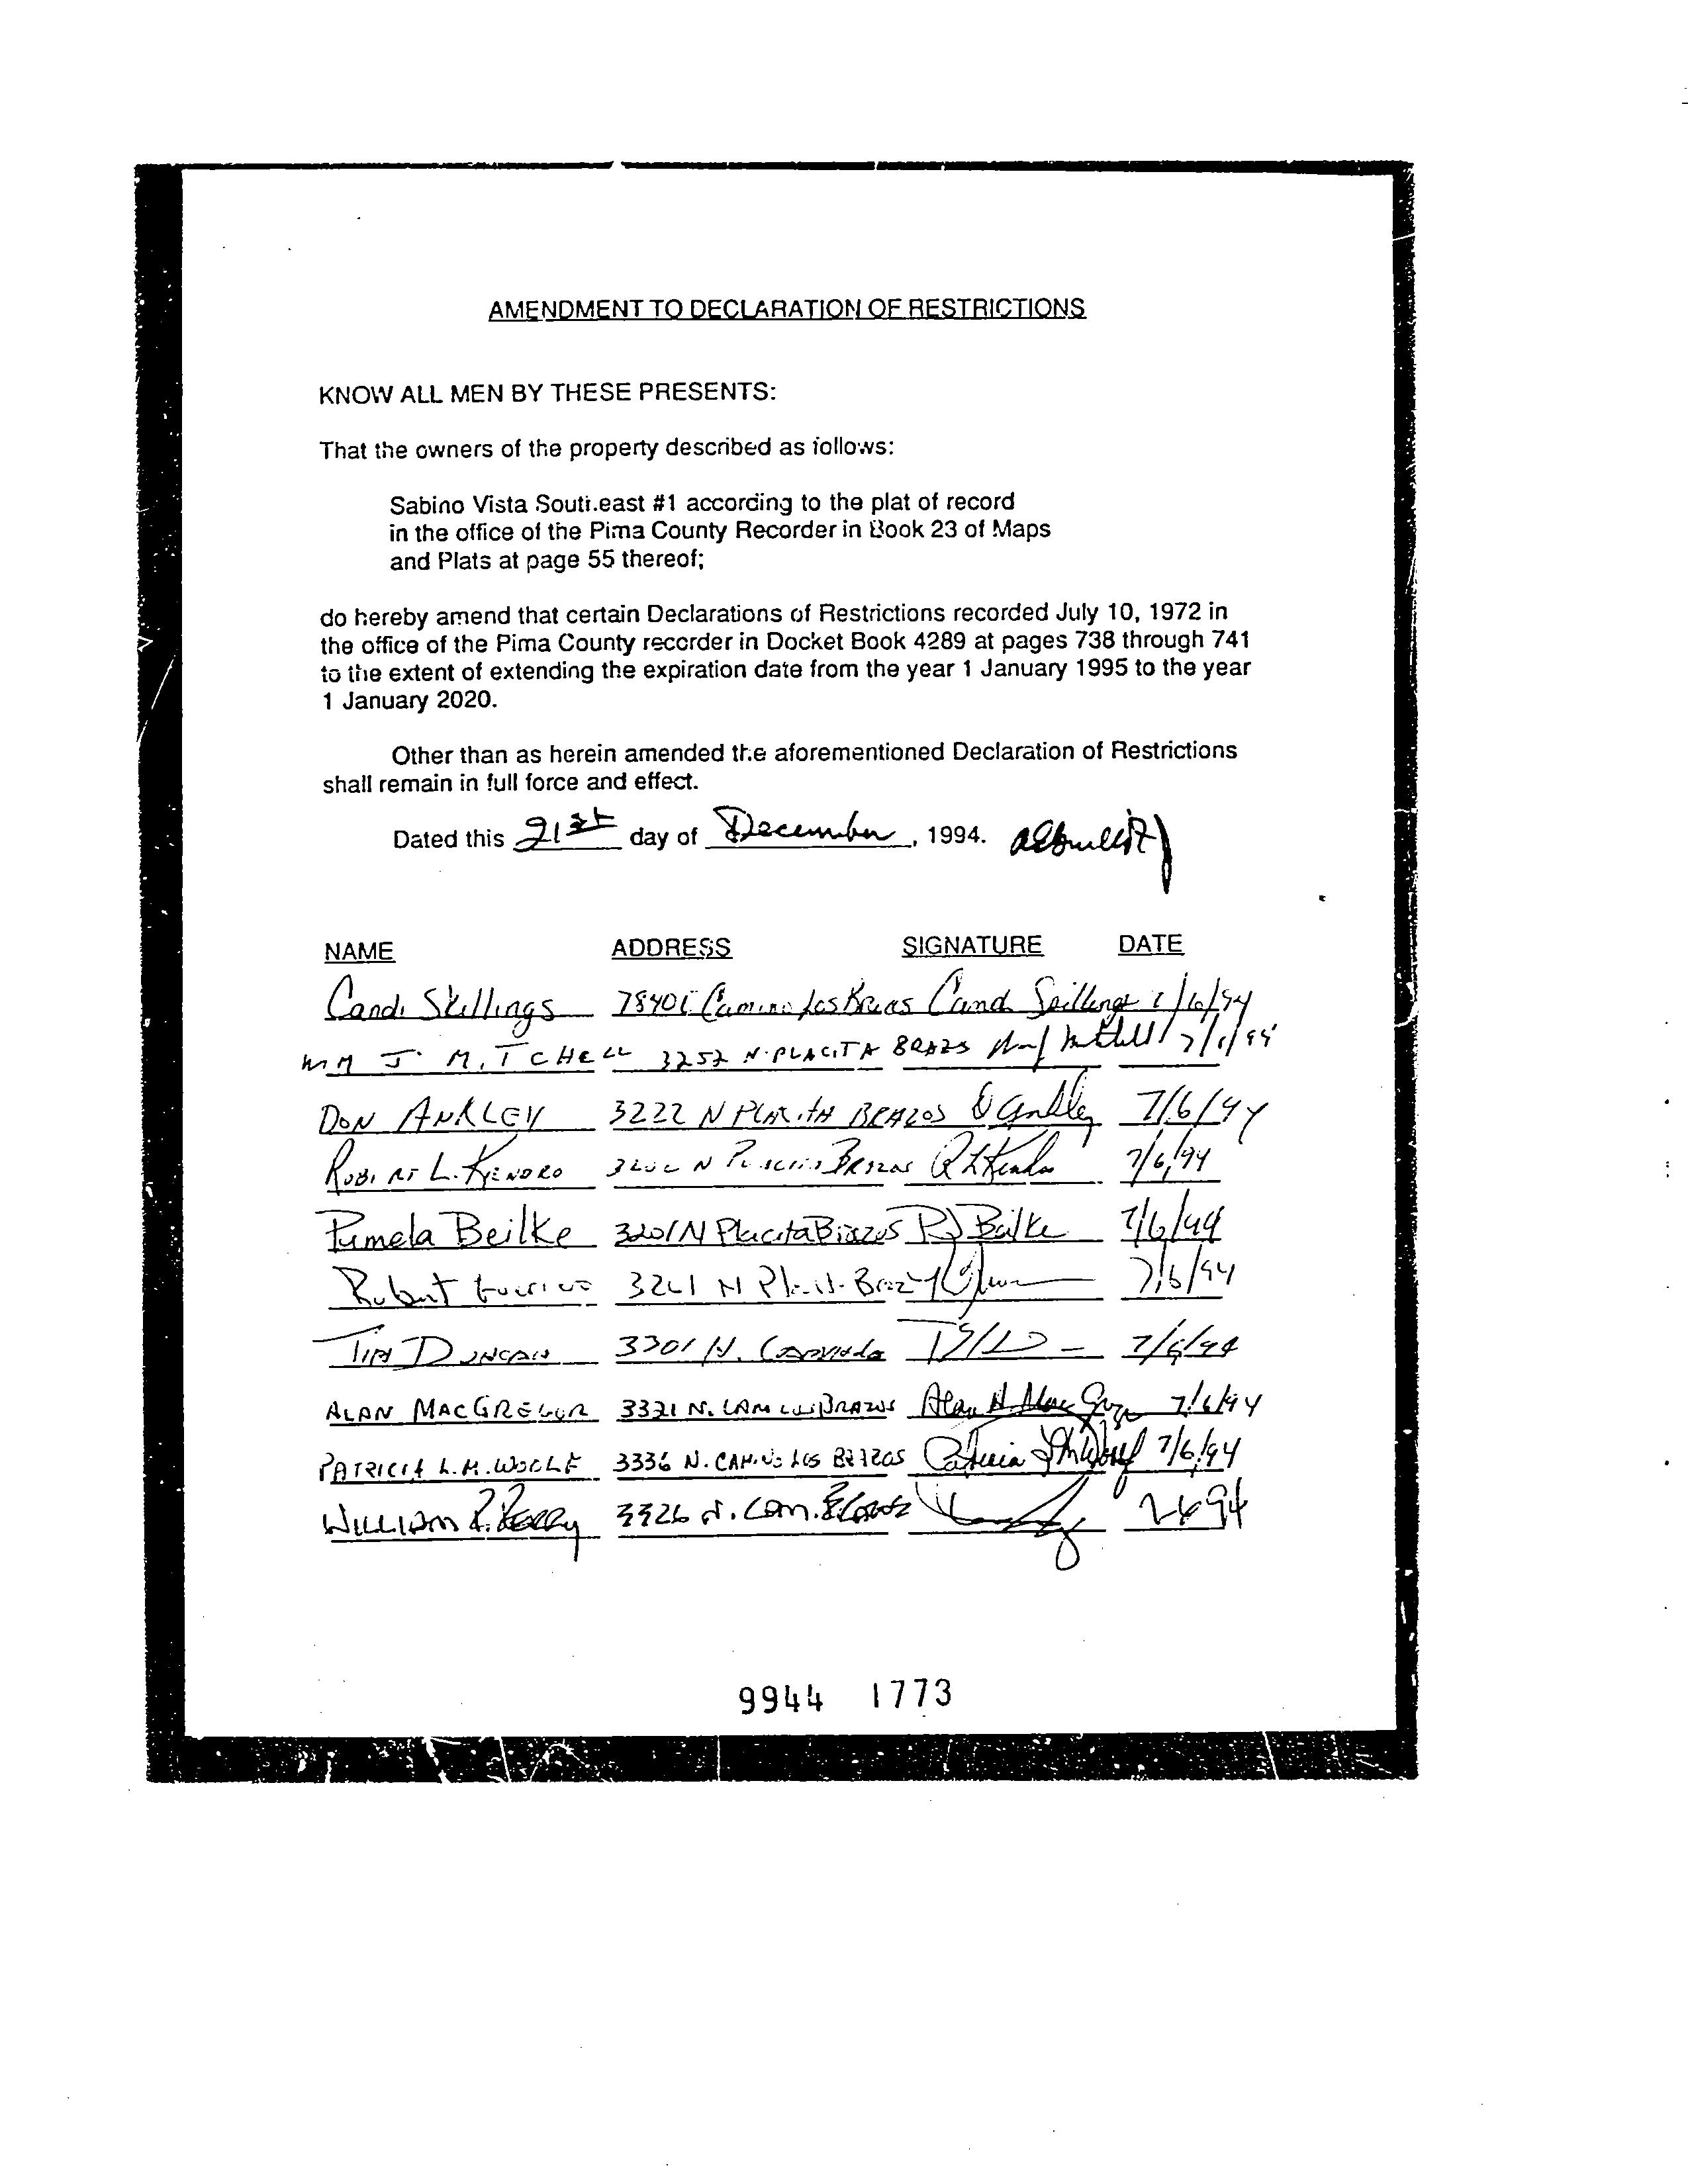 AMENDMENT TO DECLARATION OF RESTRICTIONS
KNOW ALL MEN BY THESE PRESENTS:
That the owners of the property described as follows:
Sabino Vista Southeast #1 according to the plat of record
in the office of the Pima County Recorder in Book 23 of Maps
and Plats at page 55 thereof;
do hereby amend that certain Declarations of Restrictions recorded July 10, 1972 in
the office of the Pima County recorder in Docket Book 4289 at pages 738 through 741
to the extent of extending the expiration date from the year 1 January 1995 to the year
1 January 2020.
Other than as herein amended the aforementioned Declaration of Restrictions
shall remain in full force and effect.
Dated this 21st day of December, 1994.
NAME ADDRESS SIGNATURE DATE
Candi Skillings Camino Los
WM J. MITCHELL 3252 N. PLACITA BRAZS
DON ANKLEY 3222 N PLACITA BRAZOS 7/6/94
ROBERT L. KENDRO N BRAZOS 7/6/94
Pamela Beilke 3201 N Placita Brazos PJ Beilke 7/6/94
Robert N 7/6/94
TIM DUNCAN 3301 N. 7/6/94
ALAN MACGREGOR 3321 N. CAM LOS BRAZOS Alan H. MacGregor 7/6/94
PATRICIA L.M. WOOLF 3336 N. CAMINO LOS BRAZOS Patricia 7/6/94
WILLIAM 3326 N. CAM.
9944 1773